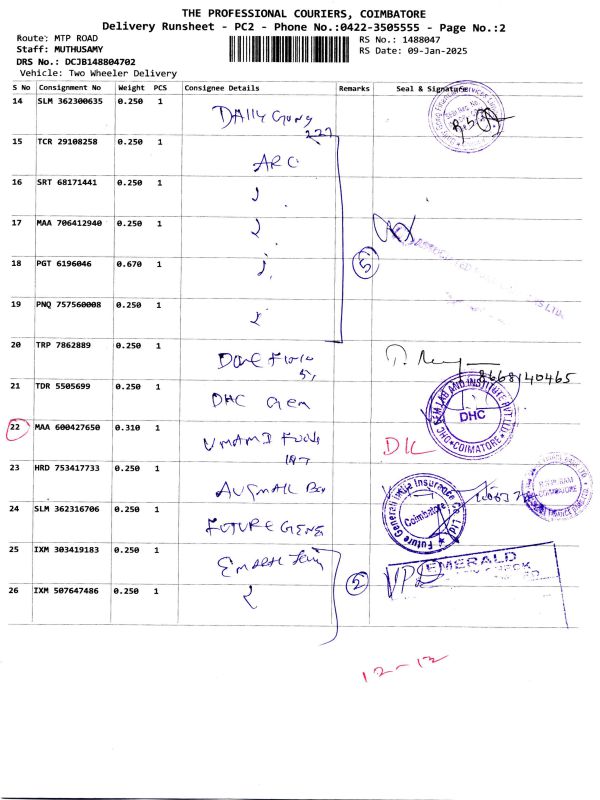 THE PROFESSIONAL COURIERS, COIMBATORE
Delivery Runsheet - PC2 - Phone No.:0422-3505555 - Page No.:2
Route: MTP ROAD
RS No.: 1488047
Staff: MUTHUSAMY
RS Date: 09-Jan-2025
DRS No.: DCJB148804702
Vehicle: Two Wheeler Delivery
S No Consignment No Weight PCS Consignee Details Remarks Seal & Signature
14 SLM 362300635 0.250 1
15 TCR 29108258 0.250 1 ARC
16 SRT 68171441 0.250 1
17 MAA 706412940 0.250 1
18 PGT 6196046 0.670 1 5
19 PNQ 757560008 0.250 1
20 TRP 7862889 0.250 1
8668140465
21 TDR 5505699 0.250 1 DHC Gem
GEM LAB AND INSTITUTE PVT LTD
DHC
COIMATORE
22 MAA 600427650 0.310 1 UMAMI Foods
23 HRD 753417733 0.250 1
24 SLM 362316706 0.250 1 FUTURE GENE
Future Generali India Insurance Co. Ltd
Coimbatore
25 IXM 303419183 0.250 1
EMERALD
26 IXM 507647486 0.250 1 2
12-12